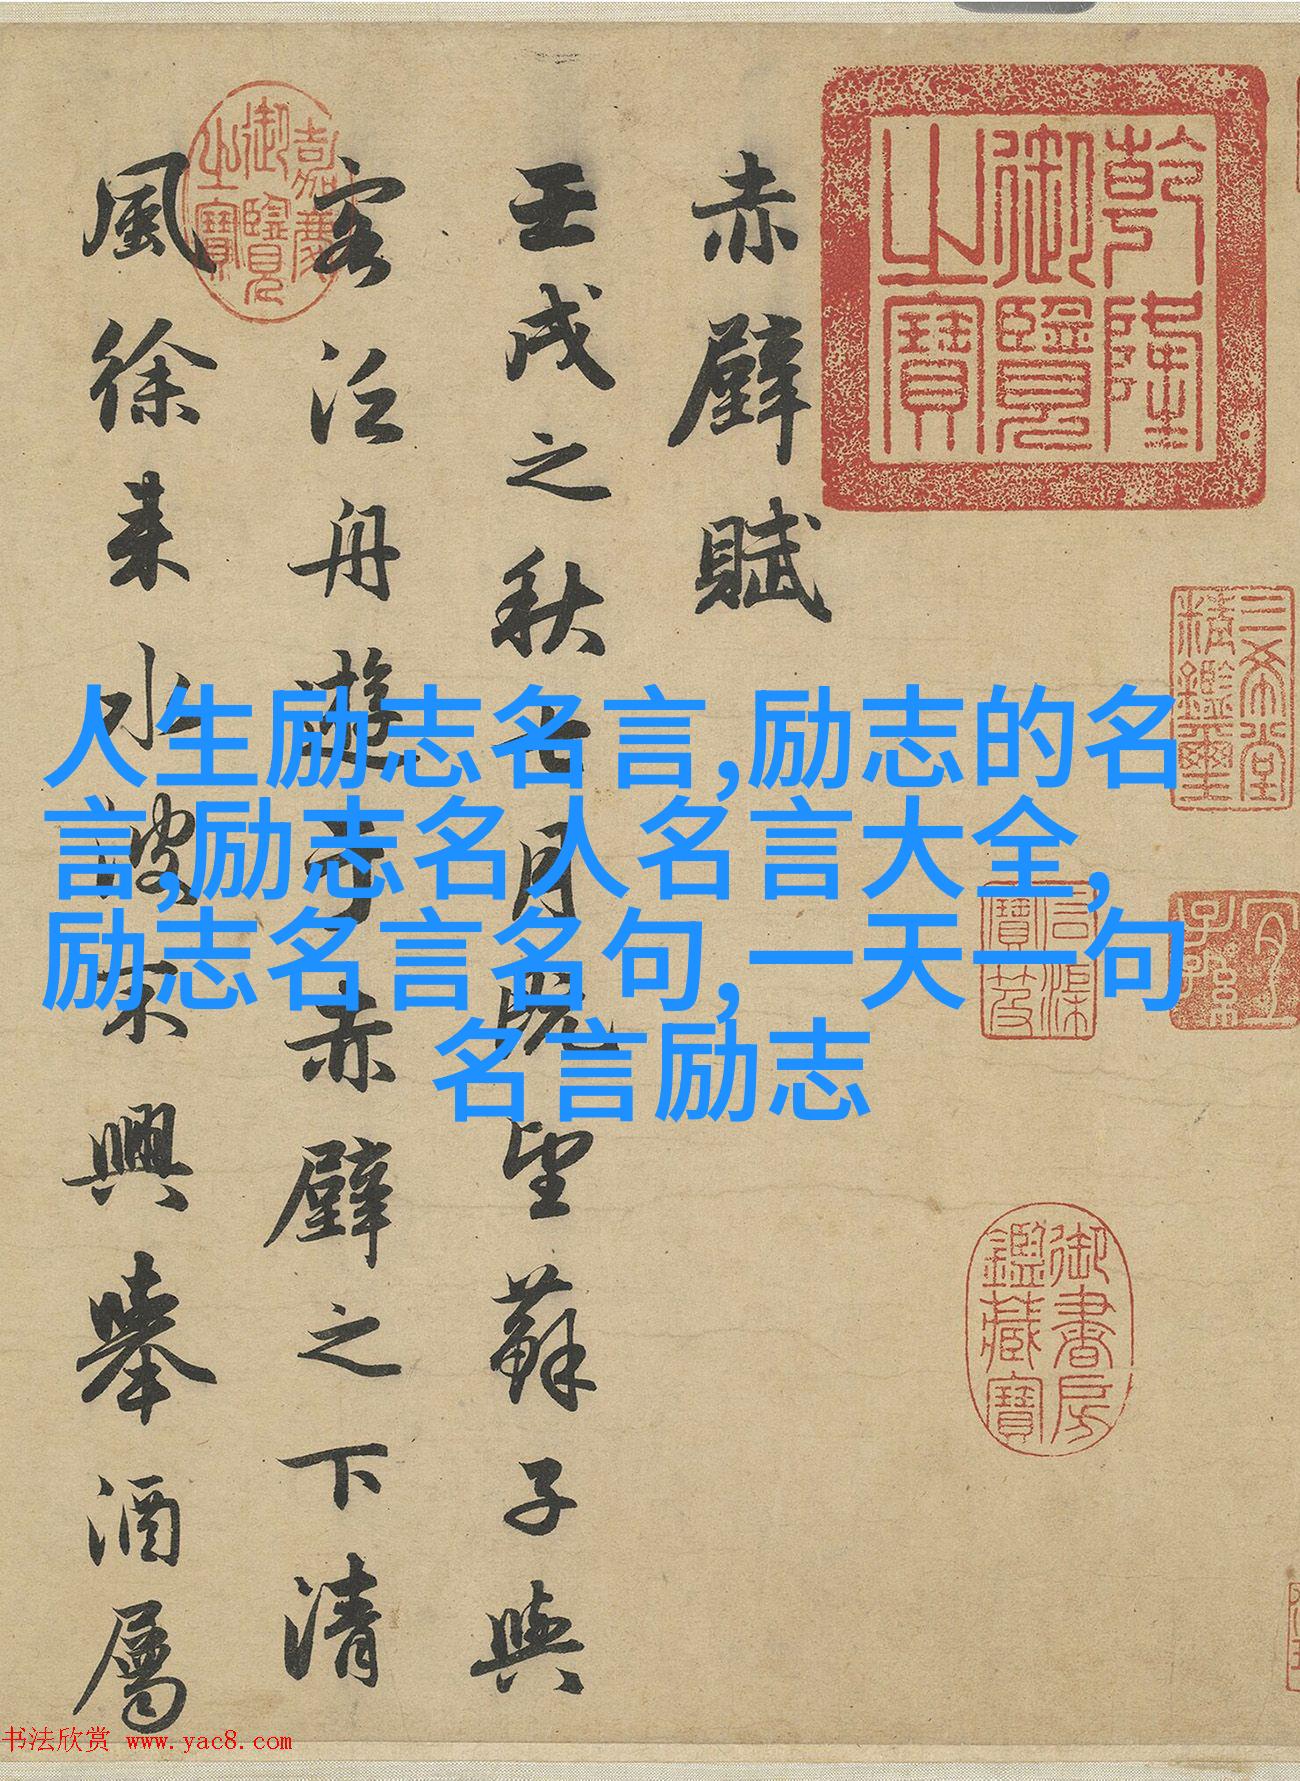 赤壁賦
壬戌之秋七月既望蘇子與
客泛舟遊于赤壁之下清
風徐来水波不興舉酒屬
乾隆御覽之寶
嘉慶御覽之寶
三希堂精鑑璽
宜子孫
石渠寶笈
御書房鑑藏寶
人生励志名言,励志的名
言,励志名人名言大全,
励志名言名句,一天一句
名言励志
书法欣赏 www.yac8.com